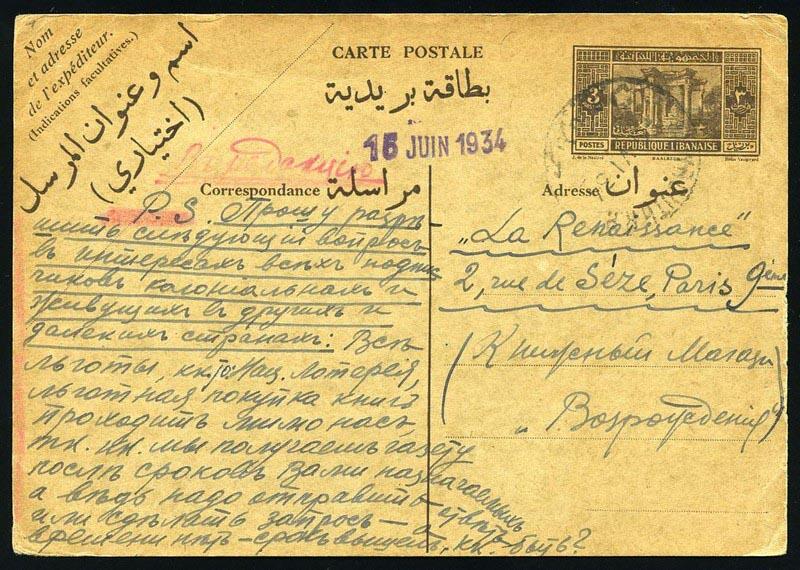 Nom
et adresse
de l'expéditeur.
(Indications facultatives.)
اسم وعنوان المرسل
(اختياري)
CARTE POSTALE
بطاقة بريدية
15 JUIN 1934
Correspondance مراسلة
Adresse عنوان
3
POSTES
REPUBLIQUE LIBANAISE
BAALBECK
P.S. Прошу разрѣ-
шить слѣдующій вопросъ
въ интересахъ всѣхъ подпис
чиковъ колоніальныхъ и
живущихъ въ другихъ и
далекихъ странахъ: Всѣ
льготы, кк.то: Нац. Лотерея,
льготная покупка книгъ
проходитъ мимо насъ
тк. кк. мы получаемъ газету
послѣ сроковъ Вами назначенныхъ
а вѣдь надо отправить отвѣтъ
или сдѣлать запросъ — а
времени нѣтъ — срокъ вышелъ, кк. быть?
„La Renaissance"
2, rue de Sèze, Paris 9ème
(Книжный Магазин
„Возрожденія")